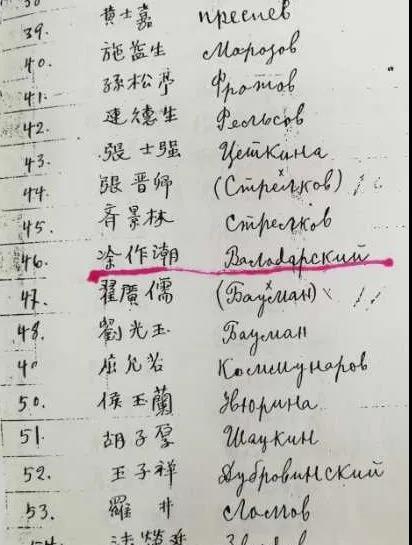 39. 黄士嘉 Преснев
40. 施益生 Морозов
41. 孫松亭 Фролов
42. 連德生 Рельсов
43. 張士强 Цеткина
44. 張晋卿 (Стрелков)
45. 齐景林 Стрелков
46. 涂作潮 Валодарский
47. 翟廣儒 (Бауман)
48. 劉光玉 Бауман
屈允若 Коммунаров
50. 侯玉蘭 Зюрина
51. 胡子厚 Шаукин
52. 王子祥 Дубровинский
53. 羅 Сломов